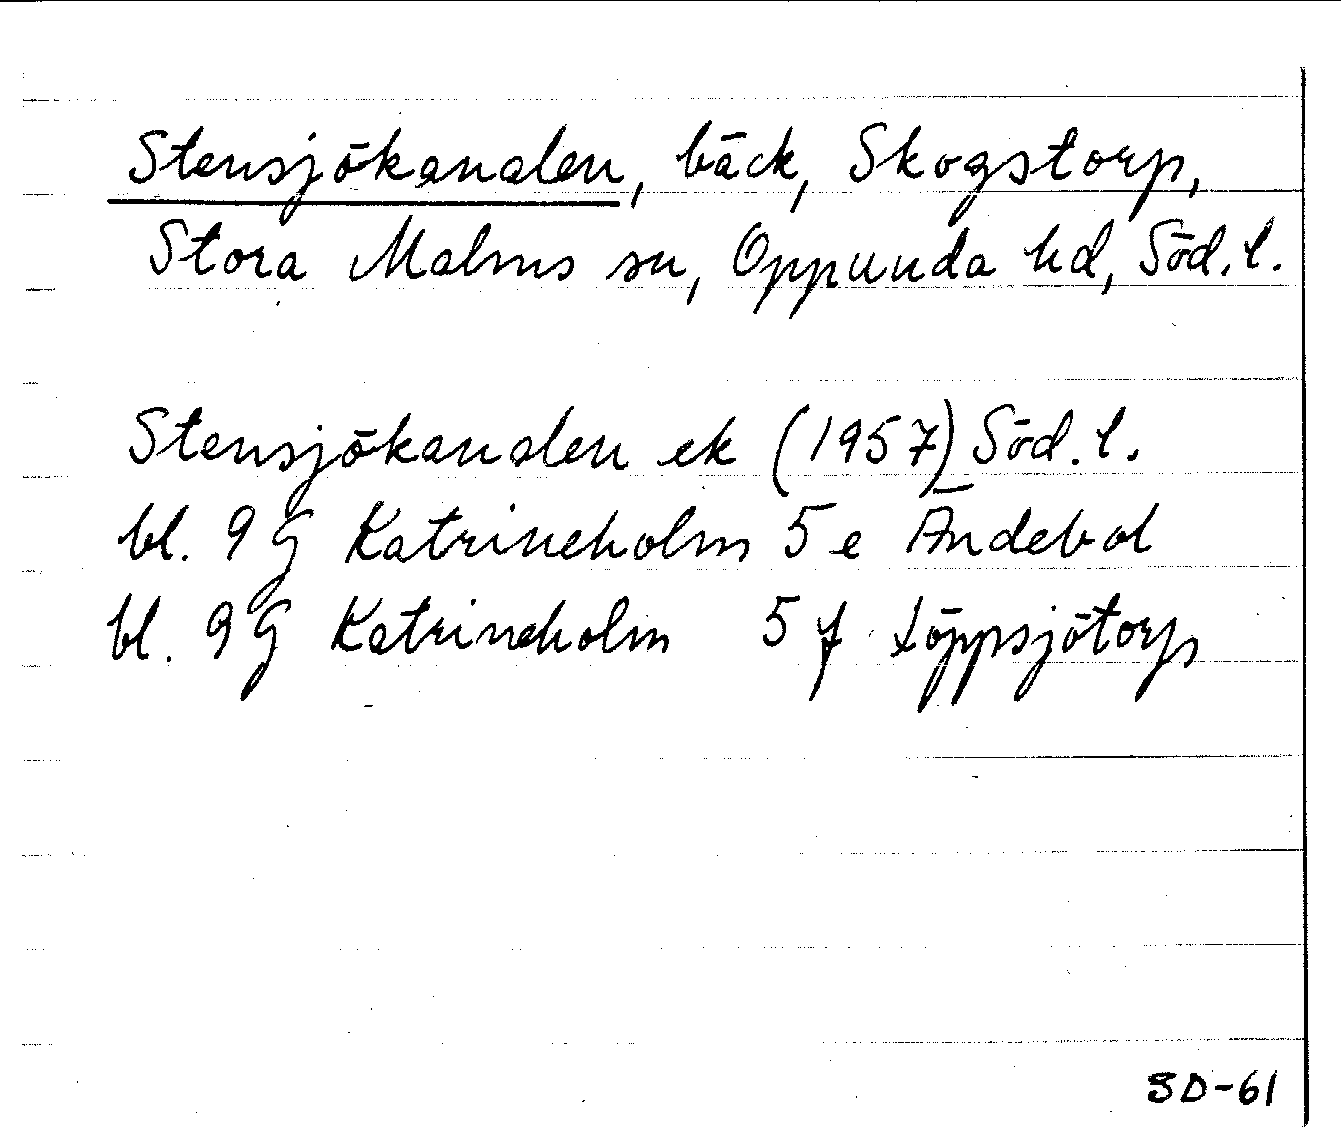 Stensjökanalen, bäck, Skogstorp,
Stora Malms sn, Oppunda hd, Söd. l.
Stensjökanalen ek (1957) Söd. l.
bl. 9 G Katrineholm 5 e Ändebol
bl. 9 G Katrineholm 5 f Löppsjötorp
SD-61